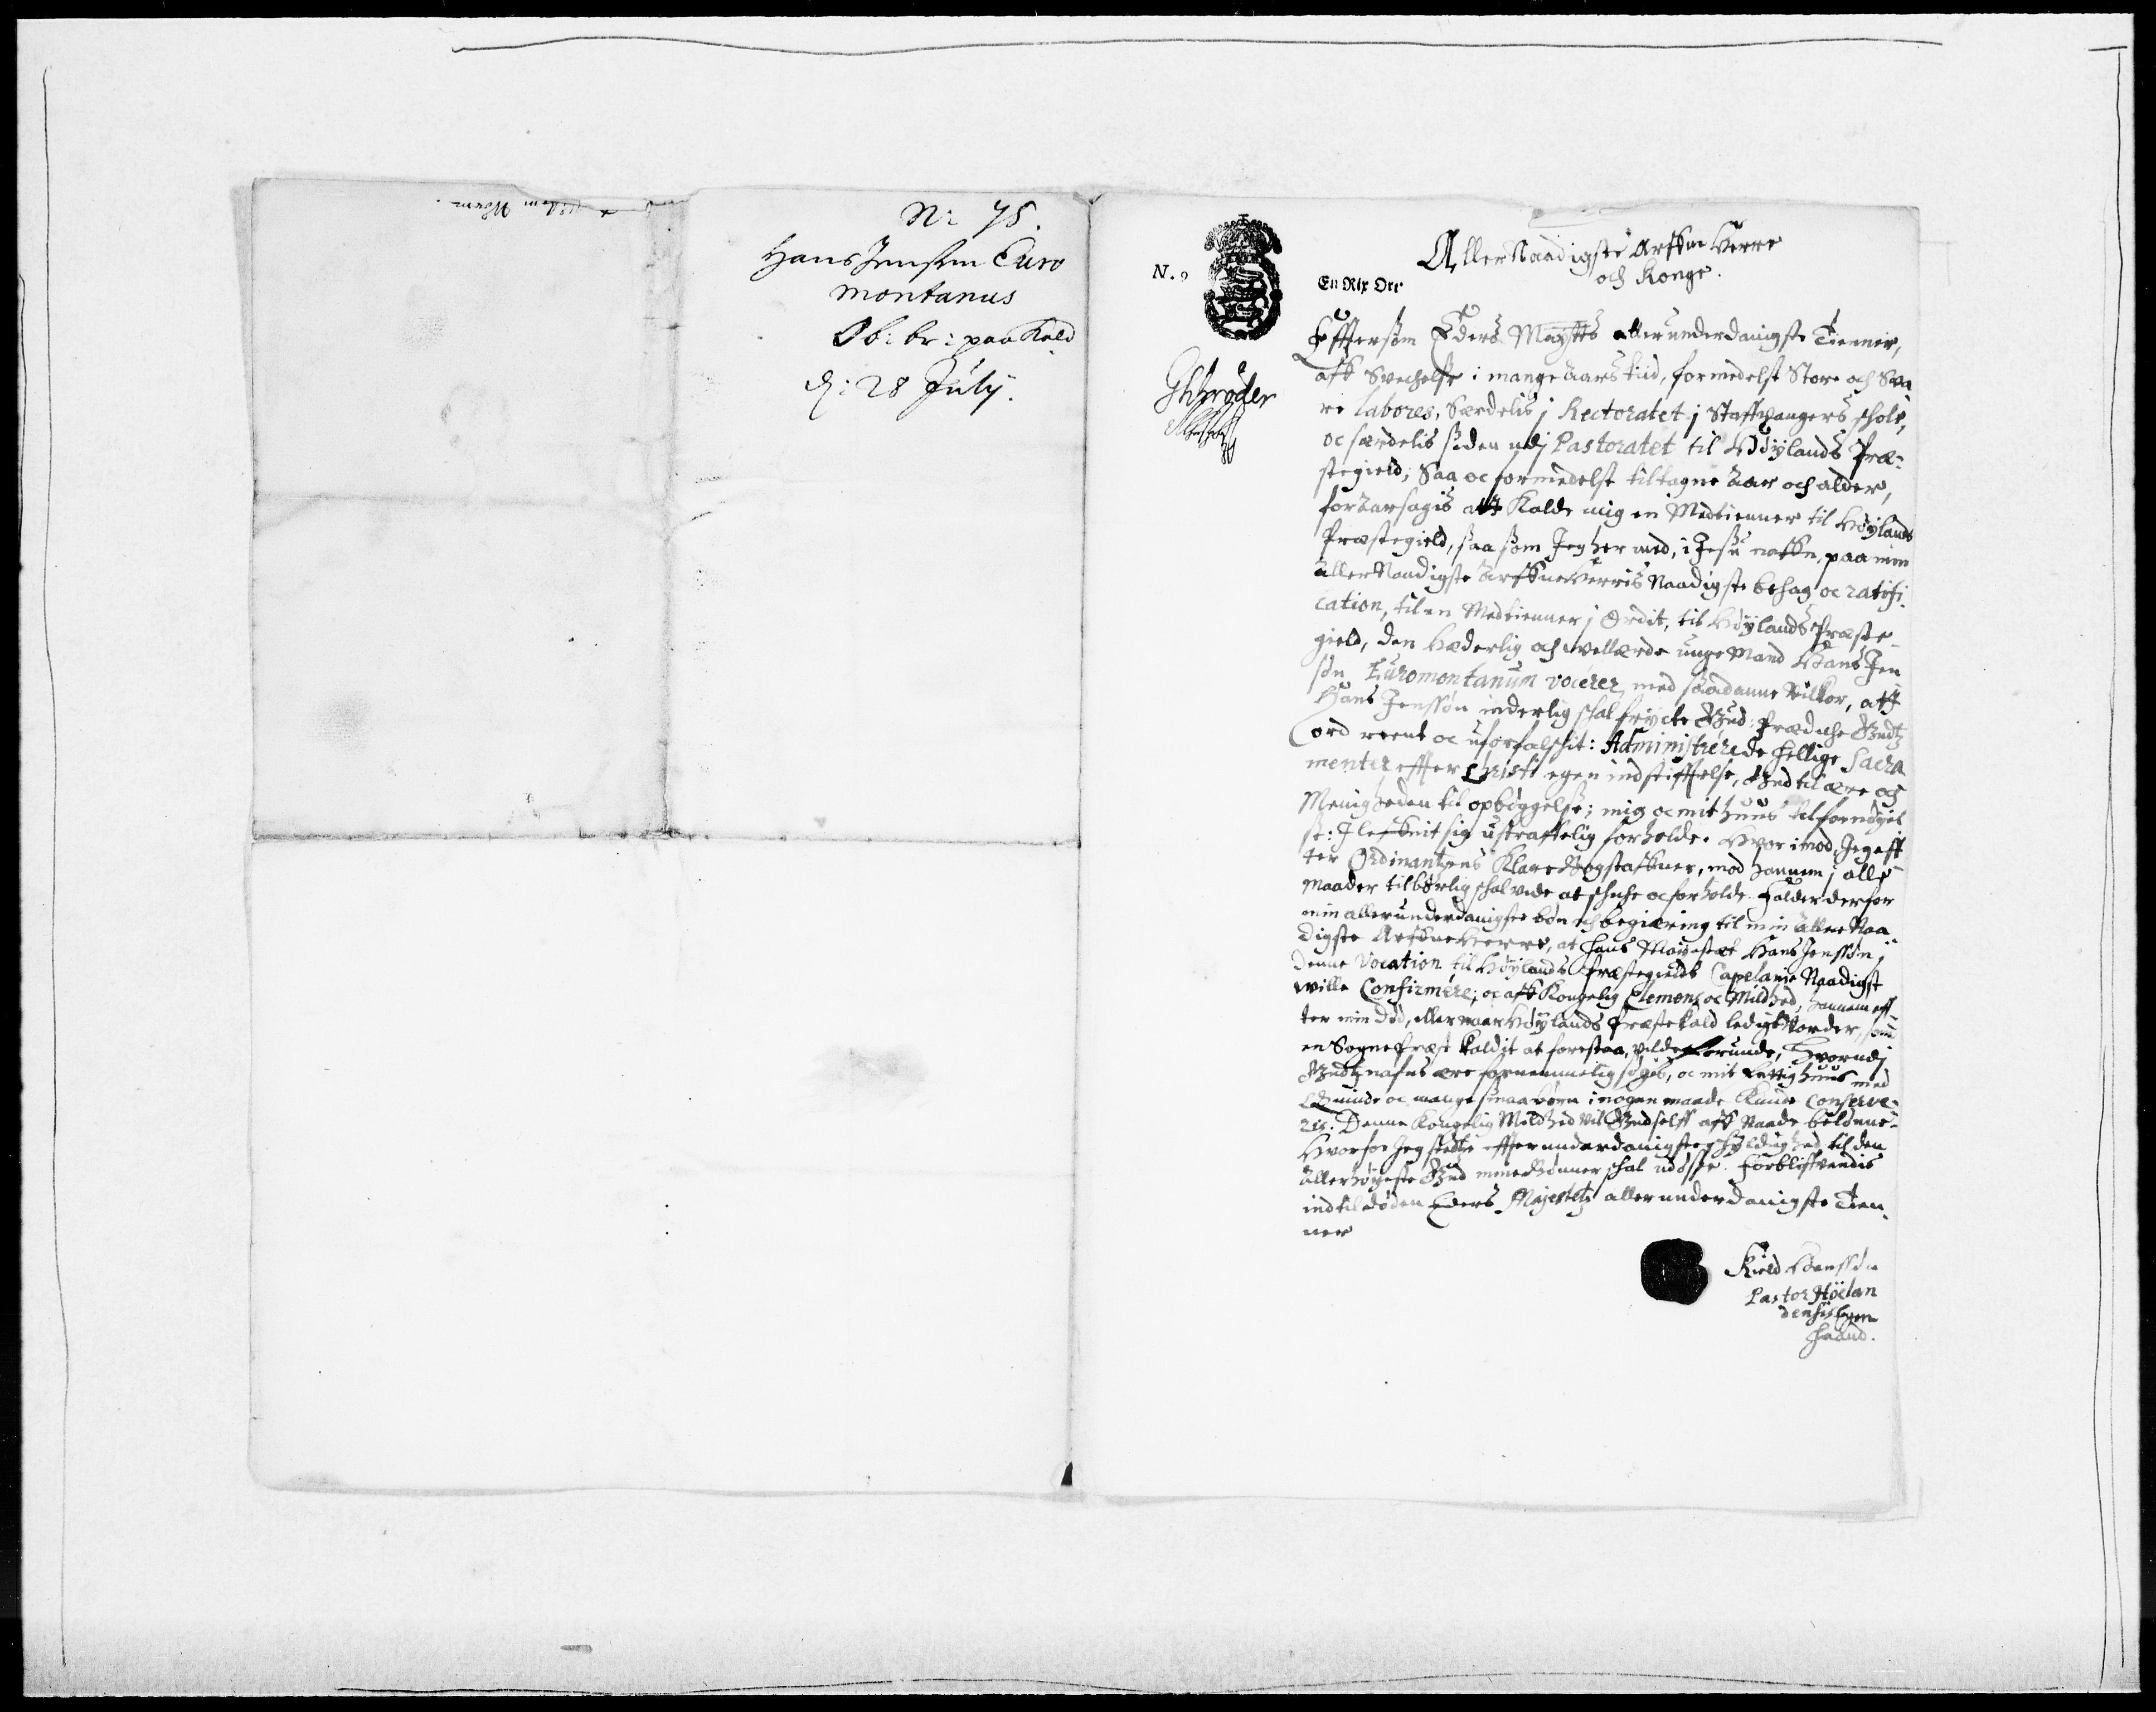 N: 75.
Hans Jensen Euro
montanus
Ob: br: paa Kald
d: 28 July.
N. 9
En Rix Ort
Schrøder
AllerNaadigste Arffue Herre
och Konge.
Efftersom Eders Maÿtts allerunderdanigste Tienner,
aff Svechelse i mange aars tiid, formedelst Store och Sva
re labores, Særdelis j Rectoratet j Staffvangers schole,
oc særdelis siden udj Pastoratet til Høÿlands Præ-
stegield; Saa oc formedelst tiltagne aar och alder,
foraarsagis att Kalde mig en Medtienner til Høÿlands
Præstegield, saa som Jeg her med, i Jesu naffn, paa min
allerNaadigste Arffue Herris Naadigste behag oc ratifi-
cation, til en Medtienner j Ordit, til Høÿlands Præste-
gield, den Hæderlig och vellærde unge Mand Hans Jen
søn Euromontanum vocerer, med saadanne Vilkor, att
Hans Jenssøn inderlig schal frycte Gud: Prædiche Gudtz
ord reent oc uforfalschit: Administrere de hellige Sacra
menter effter Christi egen indstifftelse, Gud til ære och
Menigheden til opbyggelse; mig oc mit huus til fornøyel
se: J leffnit sig ustraffelig forholde. Hvor imod, Jeg eff
ter Ordinantzens Klare Bogstaffuer, mod hannem j alle
maader tilbørlig schal vide at schiche oc forholde. Falder derfor
min allerunderdanigste bøn och begiæring til min aller Naa
digste Arffue Herre, at Hans Mayestæt Hans Jenssøn j
denne Vocation til Høÿlands Præstegields Capelanie Naadigst
wille Confirmere; oc aff Kongelig Clemens oc Mildhed, hannem eff
ter min Død, eller naar Høÿlands Præstekald ledigt Vorder, som
en Sogne Præst kaldit at forestaa, vilde forunde, Hvorudj
Gudtz nafns ære fornemmelig søgis, oc mit fattig huus med
Qvinde oc mange smaa børn i nogen maade kunde Conserve-
ris. Denne Kongelig Mildhed vil Gud self aff Naade belønne-
Hvorfor Jeg stedtze effter underdanigste schyldighed til den
allerhøÿeste Gud mine Bønner schal udøse. Forbliffvendis
indtil døden Eders Majestetz allerunderdanigste Tien-
ner
Kield
Pastor Höilan
densis Egen
haand.